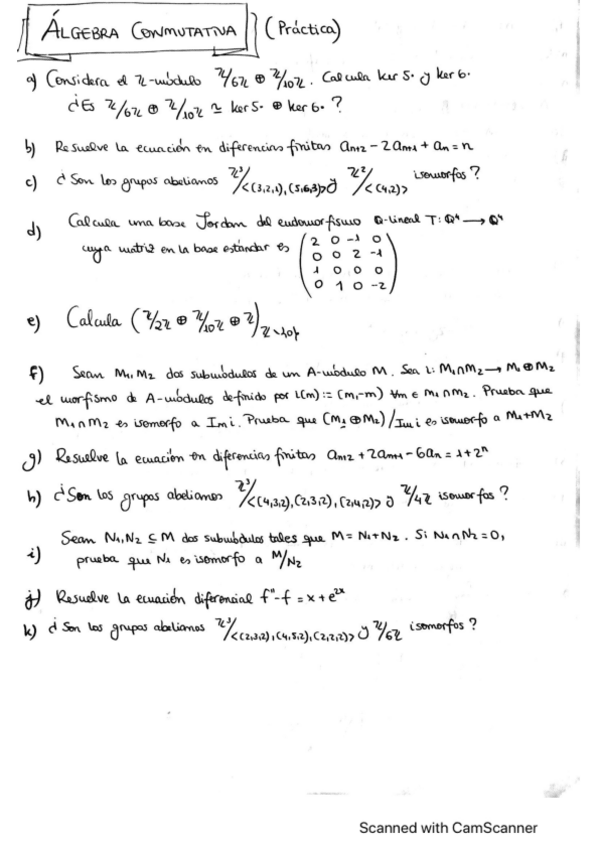 ÁLGEBRA CONMUTATIVA (Práctica)
a) Considera el Z-módulo Z/6Z ⊕ Z/10Z. Calcula ker 5· y ker 6·
¿Es Z/6Z ⊕ Z/10Z ≃ ker 5· ⊕ ker 6· ?
b) Resuelve la ecuación en diferencias finitas an+2 - 2an+1 + an = n
c) ¿Son los grupos abelianos Z³/<(3,2,1),(5,6,3)> y Z²/<(4,2)> isomorfos?
d) Calcula una base Jordan del endomorfismo Q-lineal T: Q⁴ → Q⁴
cuya matriz en la base estándar es
2 0 -1 0
0 0 2 -1
1 0 0 0
0 1 0 -2
e) Calcula (Z/2Z ⊕ Z/10Z ⊕ Z)Z\{0}
f) Sean M1, M2 dos submódulos de un A-módulo M. Sea i: M1∩M2 → M1⊕M2
el morfismo de A-módulos definido por i(m) := (m,-m) ∀m ∈ M1∩M2. Prueba que
M1∩M2 es isomorfo a Im i. Prueba que (M1⊕M2)/Im i es isomorfo a M1+M2
g) Resuelve la ecuación en diferencias finitas an+2 + 2an+1 - 6an = 1+2ⁿ
h) ¿Son los grupos abelianos Z³/<(4,3,2),(2,3,2),(2,4,2)> y Z/4Z isomorfos?
i) Sean N1, N2 ⊆ M dos submódulos tales que M = N1+N2. Si N1∩N2 = 0,
prueba que N1 es isomorfo a M/N2
j) Resuelve la ecuación diferencial f"-f = x + e²ˣ
k) ¿Son los grupos abelianos Z³/<(2,3,2),(4,5,2),(2,2,2)> y Z/6Z isomorfos?
Scanned with CamScanner